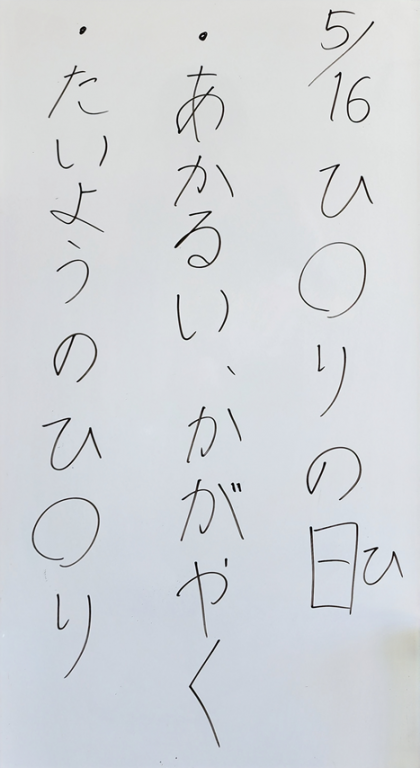 5/16 ひ〇りの日ひ
・あかるい、かがやく
・たいようのひ〇り